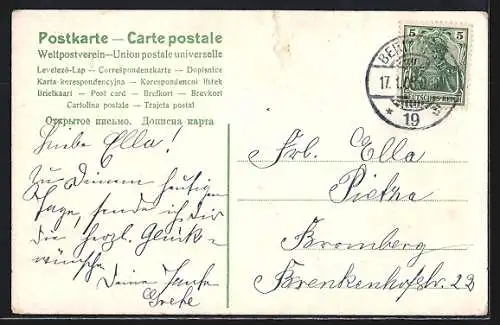 Postkarte — Carte postale
Weltpostverein — Union postale universelle
Levelező-Lap — Correspondenzkarte — Dopisnice
Karta korespondencyjna — Korespondenční lístek
Brielkaart — Post card — Brefkort — Brevkort
Cartolina postale — Trajeta postal
Открытое письмо. Дописна карта
Liebe Ella!
Zu Deinem heutigen
Tage, sende ich Dir
die herzl. Glück-
wünsche
Deine Tante
Grete
5 5
DEUTSCHES REICH
BER
17. 1.
* 19
Frl. Ella
Pietza
Bromberg
Brenkenhofstr. 23